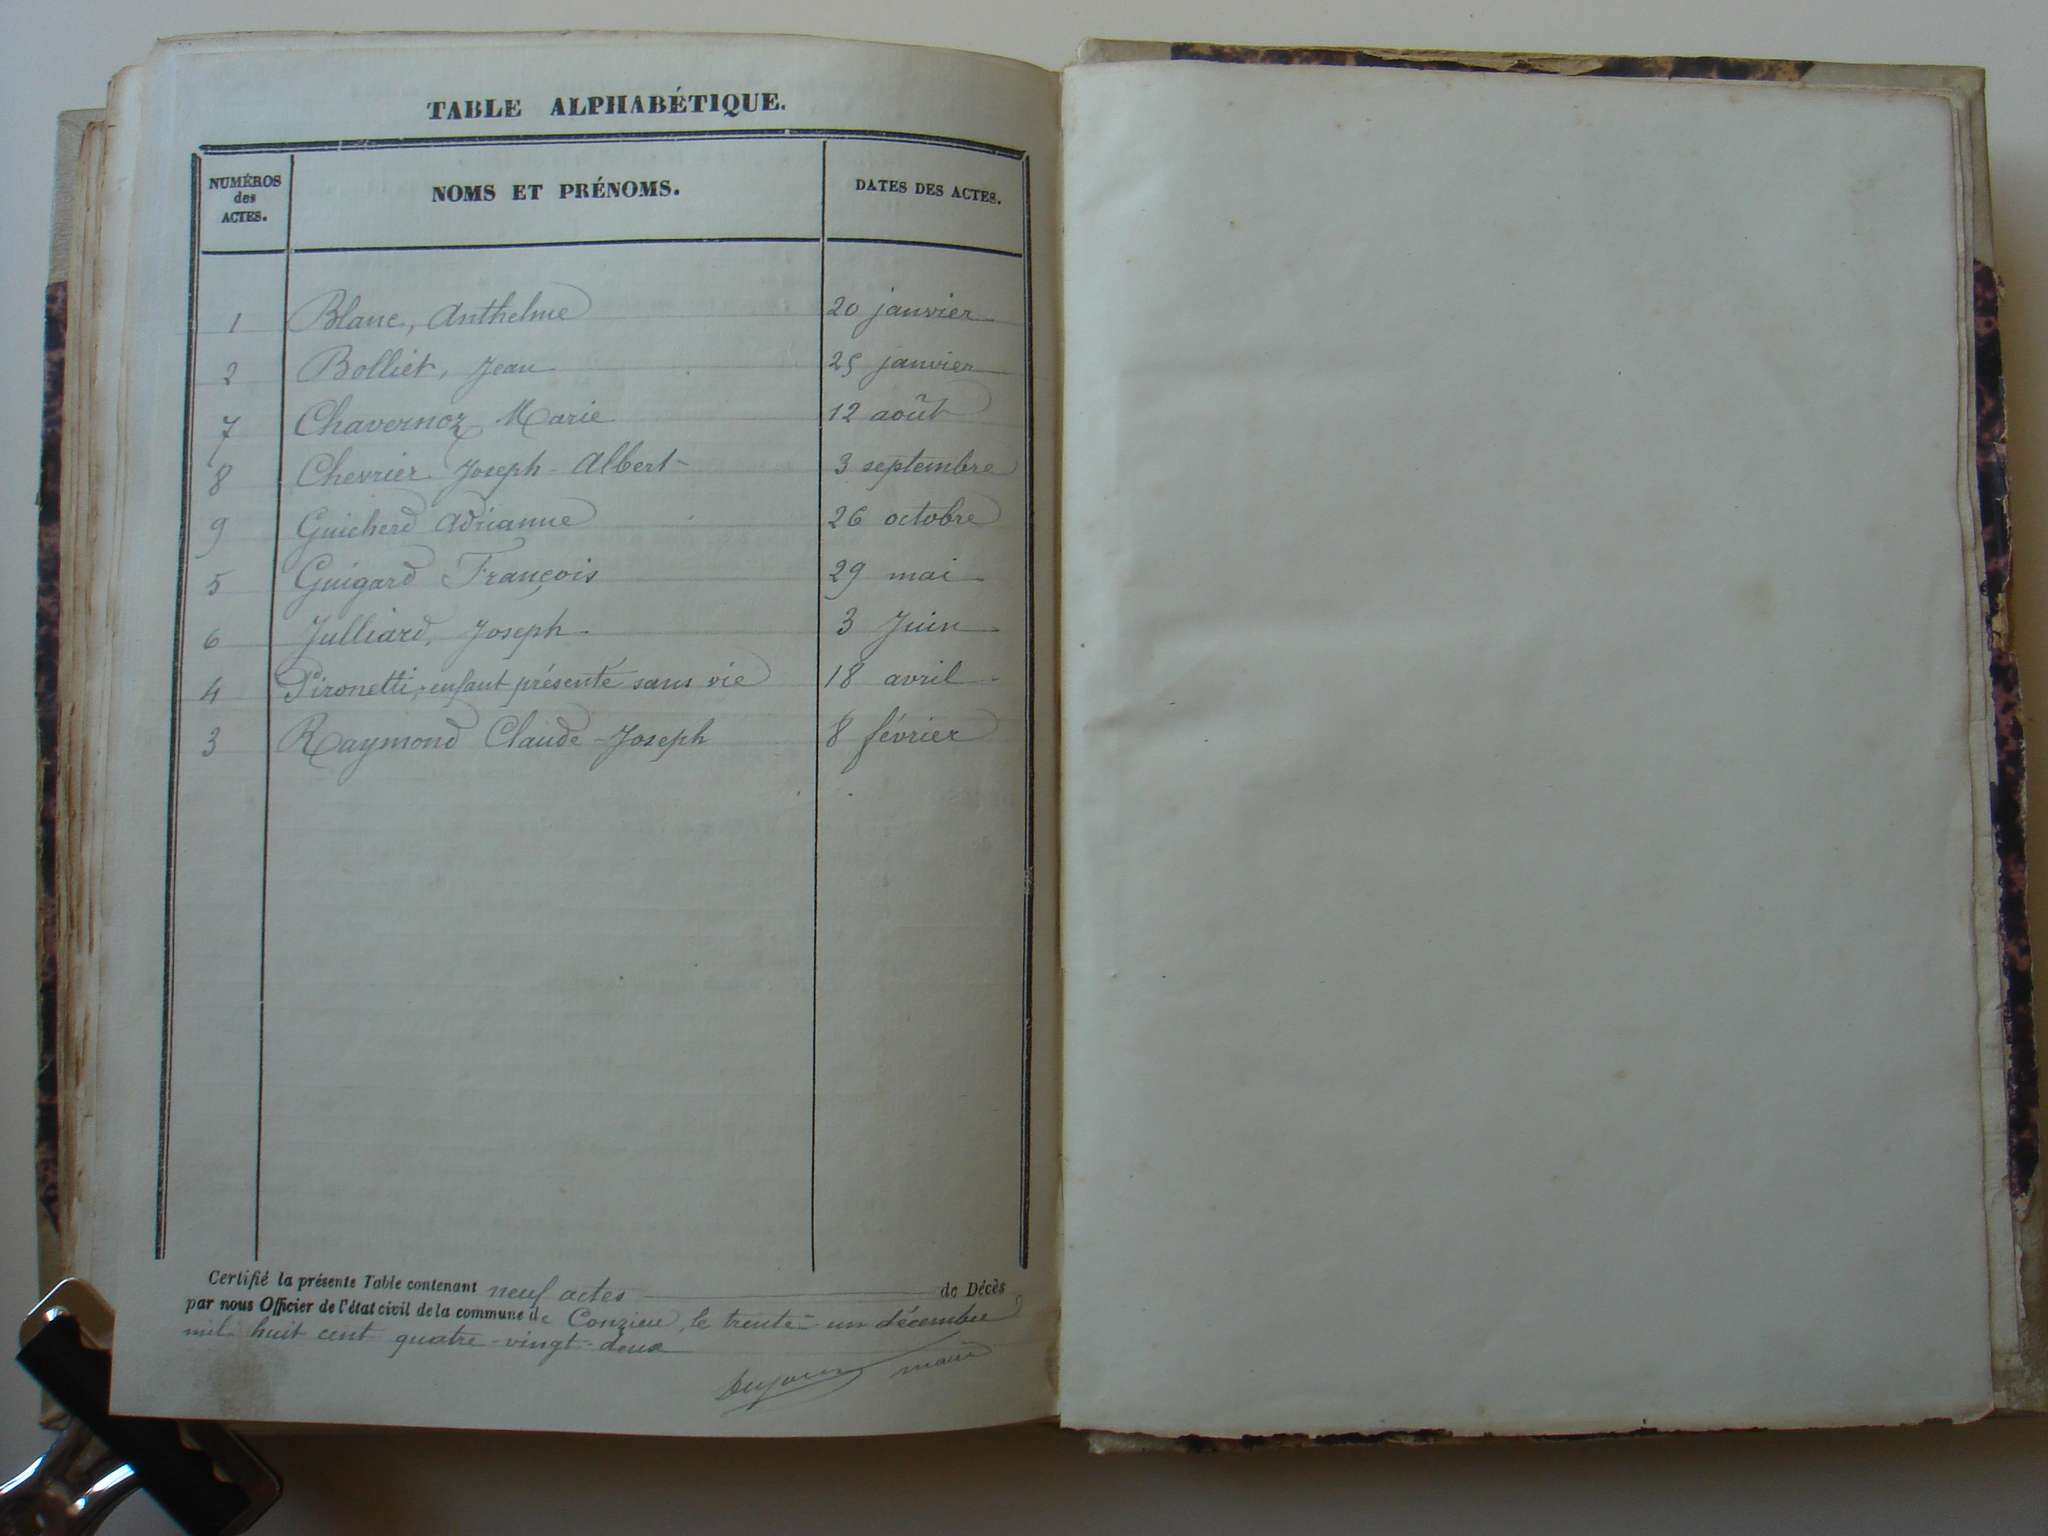 TABLE ALPHABÉTIQUE.
NUMÉROS des ACTES. NOMS ET PRÉNOMS. DATES DES ACTES.
1 Blanc, Anthelme 20 janvier
2 Bolliet, Jean 25 janvier
7 Chavernoz Marie 12 août
8 Chevrier Joseph-Albert 3 septembre
9 Guicherd Adrianne 26 octobre
5 Guigard François 29 mai
6 Julliard, Joseph 3 Juin
4 Pironetti, enfant présenté sans vie 18 avril
3 Raymond Claude-Joseph 8 février
Certifié la présente Table contenant neuf actes de Décès
par nous Officier de l'état civil de la commune de Conzieu, le trente-un décembre
mil huit cent quatre-vingt-deux
maire